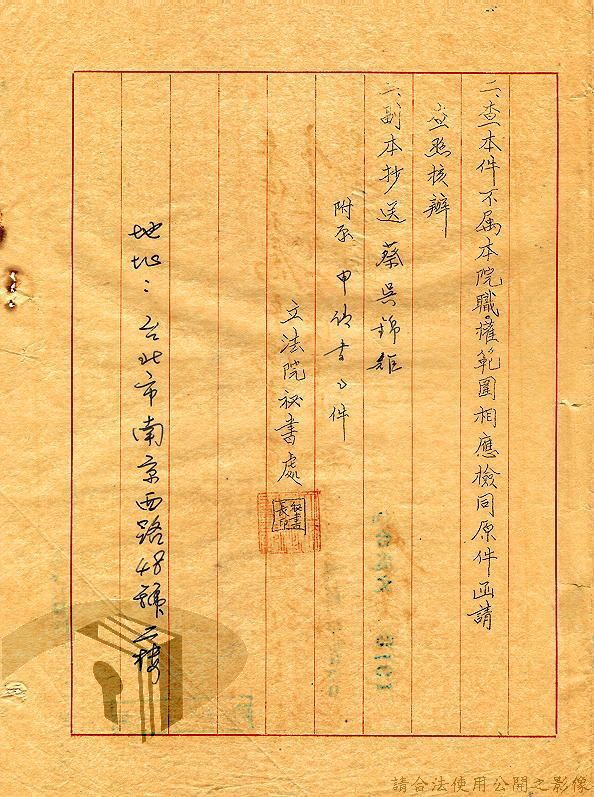 二、查本件不屬本院職權範圍相應檢同原件函請
查照核辦
三、副本抄送 蔡吳錦矩
附原 申 書 件
立法院秘書處
秘書長
地址：台北市南京西路48號二樓
請合法使用公開之影像